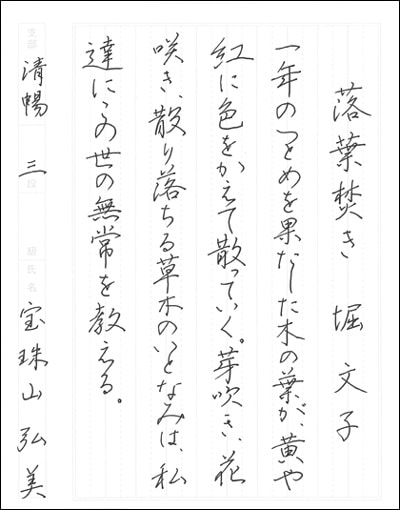 落葉焚き 堀文子
一年のつとめを果たした木の葉が、黄や
紅に色をかえて散っていく。芽吹き、花
咲き、散り落ちる草木のいとなみは、私
達にこの世の無常を教える。
支部 清暢 三 段 級 氏名 宝珠山弘美